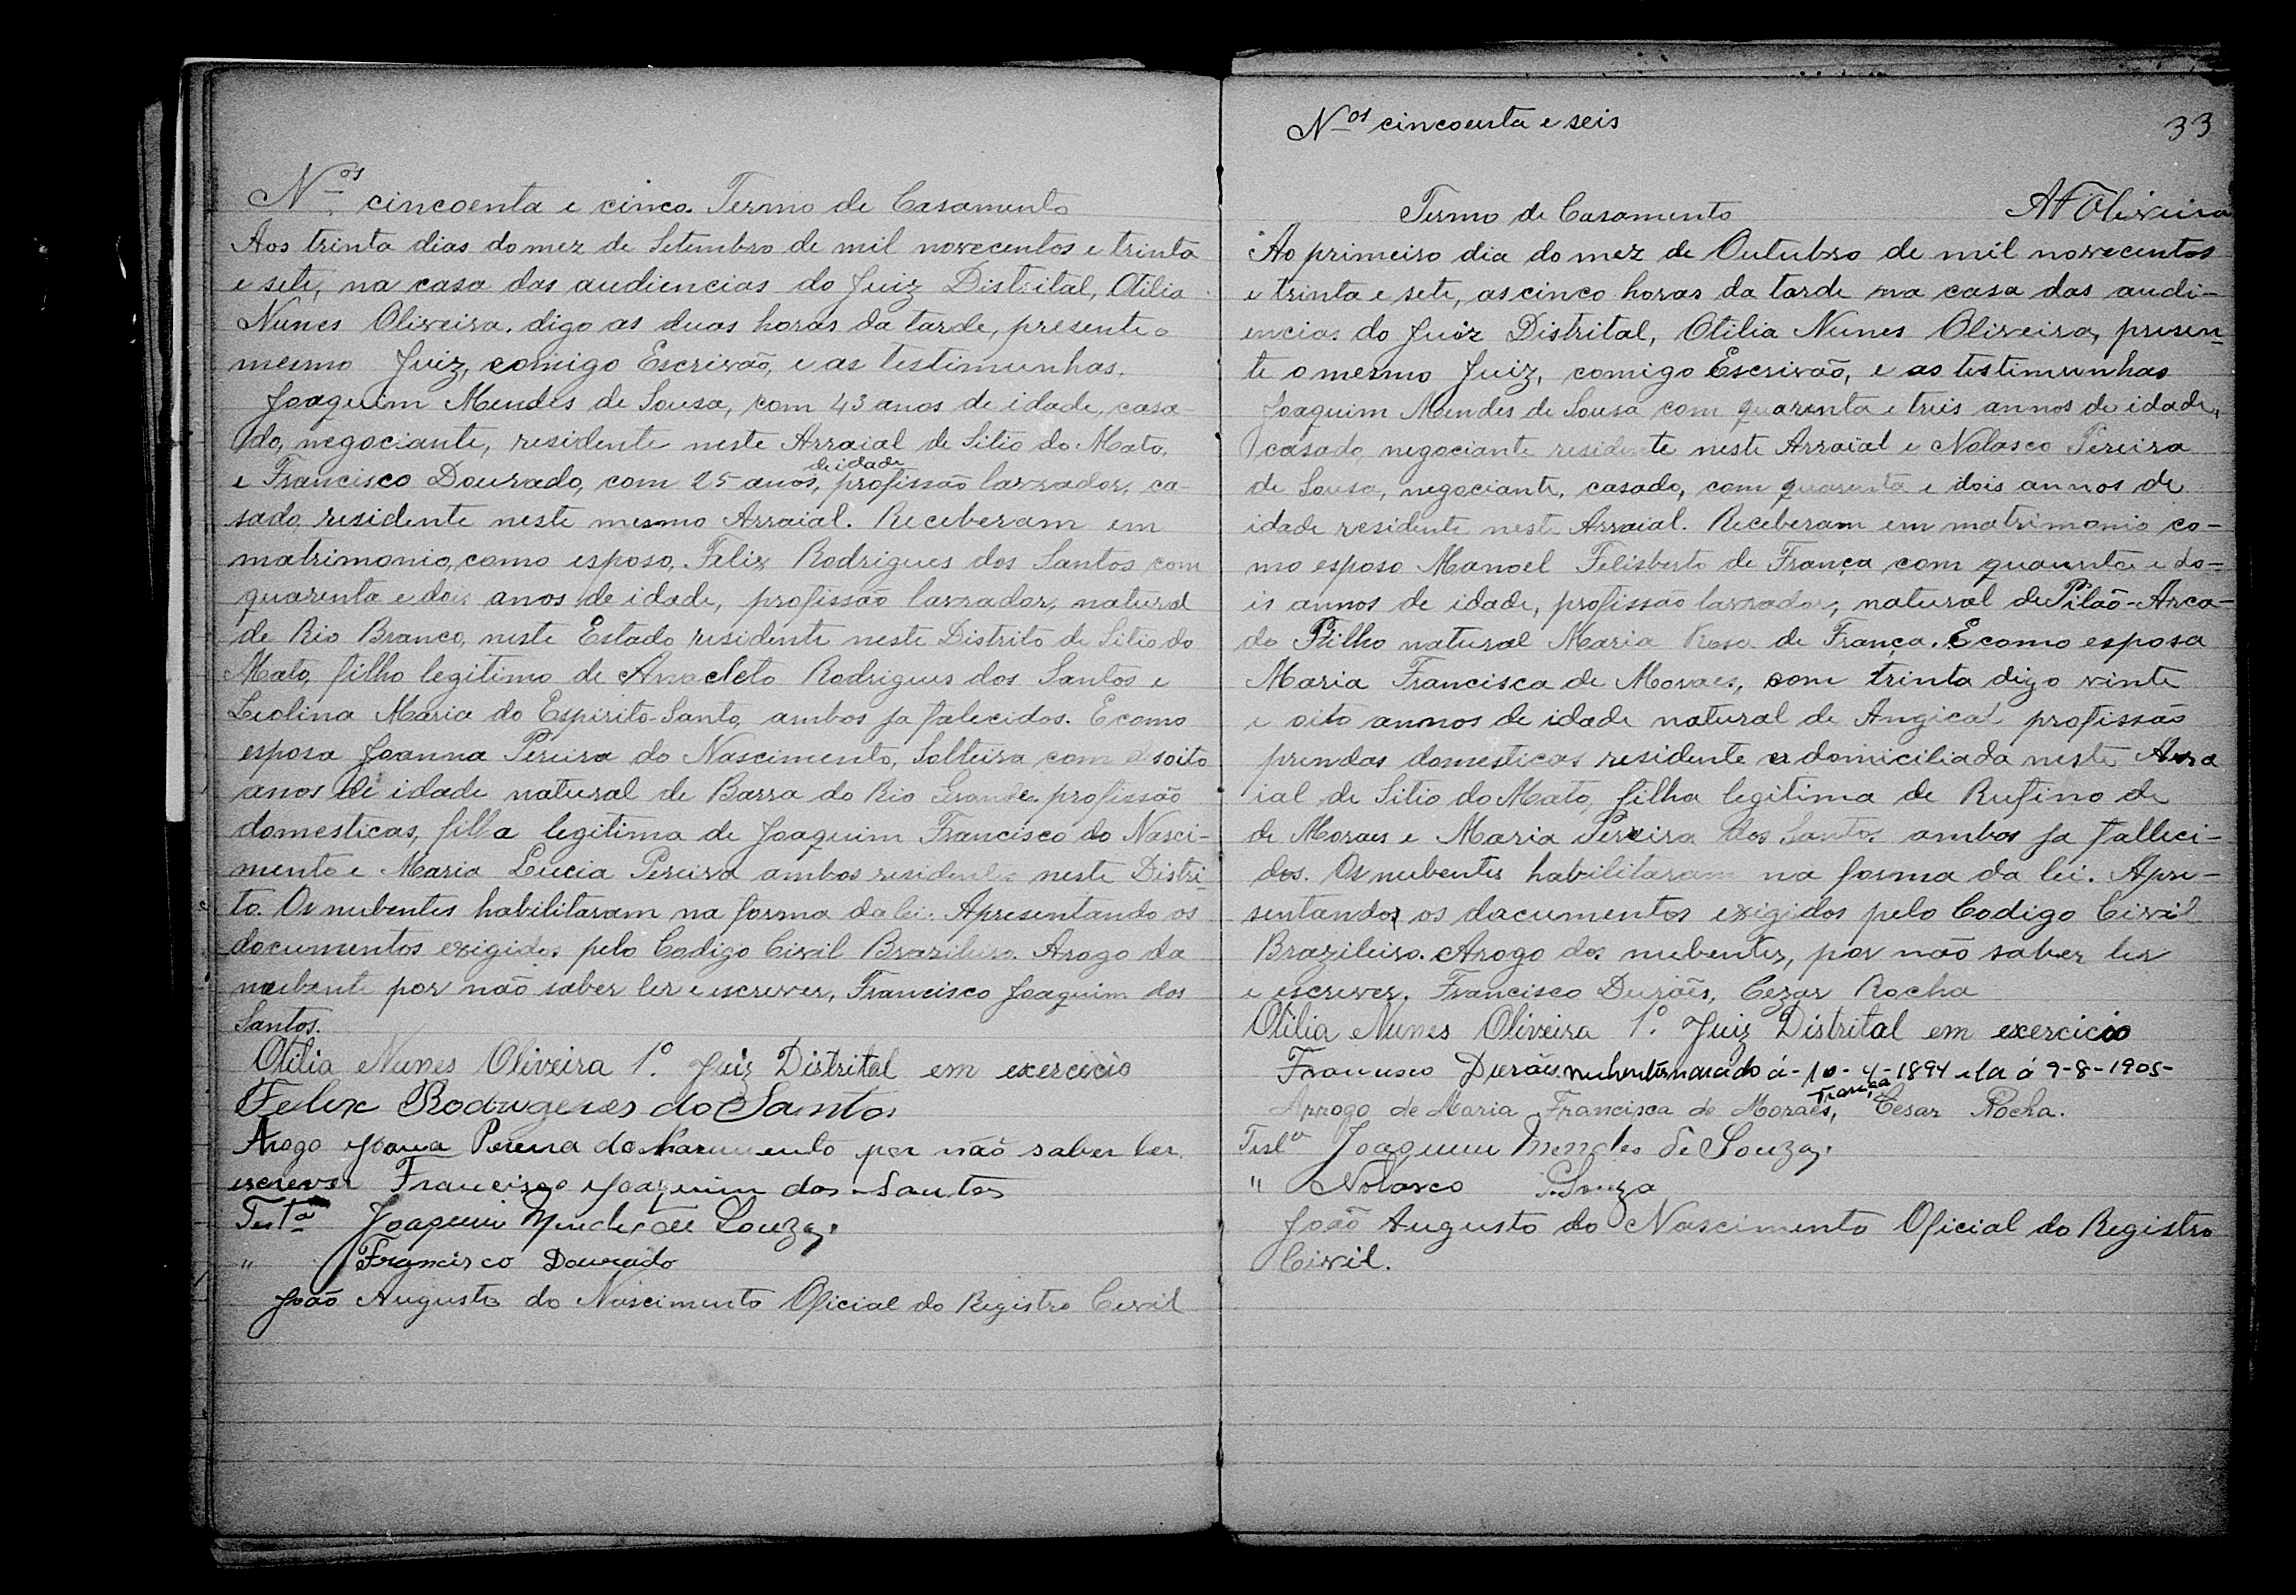 Nos cincoenta e cinco. Termo de Casamento
Aos trinta dias do mez de Setembro de mil novecentos e trinta
e sete, na casa das audiencias do Juiz Distrital, Otilia
Nunes Oliveira. digo as duas horas da tarde, presente o
mesmo Juiz, comigo Escrivão, e as testimunhas.
Joaquim Mendes de Sousa, com 43 anos de idade, casa-
do, negociante, residente neste Arraial de Sitio do Mato,
de idade
e Francisco Dourado, com 25 anos, profissão lavrador, ca-
sado, residente neste mesmo Arraial. Receberam em
matrimonio, como esposo, Felix Rodrigues dos Santos com
quarenta e dois anos de idade, profissão lavrador, natural
de Rio Branco, neste Estado residente neste Distrito de Sitio do
Mato, filho legitimo de Anacleto Rodrigues dos Santos e
Leolina Maria do Espirito-Santo, ambos ja falecidos. E como
esposa Joanna Pereira do Nascimento, Solteira, com desoito
anos de idade natural de Barra do Rio Grande. profissão
domesticas, filha legitima de Joaquim Francisco do Nasci-
mento e Maria Lucia Pereira ambos residentes neste Distri-
to. Os nubentes habilitaram na forma da lei. Apresentando os
documentos exigidos pelo Codigo Civil Brazileiro. Arogo da
nubente por não saber ler e escrever, Francisco Joaquim dos
Santos.
Otilia Nunes Oliveira 1º. Juiz Distrital em exercicio
Felix Rodrigues do Santos
Arogo Joana Pereira do Nascimento por não saber ler
escrever Francisco Joaquim dos Santos
Testª Joaquim Mendes de Souza.
" Francisco Dourado
João Augusto do Nascimento Oficial do Registro Civil
Nos cincoenta e seis
33
Termo de Casamento
Oliveira
Ao primeiro dia do mez de Outubro de mil novecentos
e trinta e sete, as cinco horas da tarde na casa das audi-
encias do Juiz Distrital, Otilia Nunes Oliveira, presen-
te o mesmo Juiz, comigo Escrivão, e as testimunhas
Joaquim Mendes de Sousa com quarenta e treis annos de idade,
casado, negociante residente neste Arraial e Nolasco Pereira
de Sousa, negociante, casado, com quarenta e dois annos de
idade residente neste Arraial. Receberam em matrimonio co-
mo esposo Manoel Felisberto de França com quarenta e do-
is annos de idade, profissão lavrador, natural de Pilaõ-Arca-
do Filho natural Maria Rosa de França. E como esposa
Maria Francisca de Moraes, com trinta digo vinte
e oito annos de idade natural de Angical profissão
prendas domesticas residente e domiciliada neste Arra
ial de Sitio do Mato, filha legitima de Rufino de
de Moraes e Maria Pereira dos Santos ambos ja falleci-
dos. Os nubentes habilitaram na forma da lei. Apre-
sentando os documentos exigidos pelo Codigo Civil
Brazileiro. Arogo dos nubentes, por não saber ler
e escrever. Francisco Durães, Cezar Rocha
Otilia Nunes Oliveira 1º. Juiz Distrital em exercicio
Francisco Durães. á - 10 - 4 - 1894 ela á 9-8-1905-
França
Arrogo de Maria Francisca de Moraes, Cesar Rocha.
Testª Joaquim Mendes de Souza.
" Nolasco P. Souza
João Augusto do Nascimento Oficial do Registro
Civil.